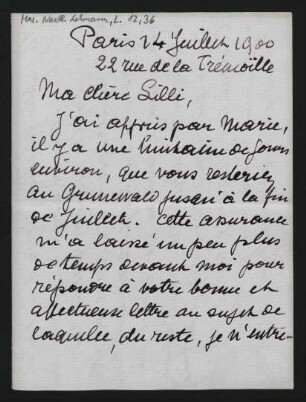 Mss. Nachl. Lehmann, L. 12,36
Paris 14 Juillet 1900
22 rue de la Trémoïlle
Ma chère Lilli,
J'ai appris par Marie,
il y a une huitaine de jours
environ, que vous resteriez
au Grunewald jusqu'à la fin
de Juillet. Cette assurance
m'a laissé un peu plus
de temps devant moi pour
répondre à votre bonne et
affectueuse lettre au sujet de
laquelle, du reste, je n'entre-